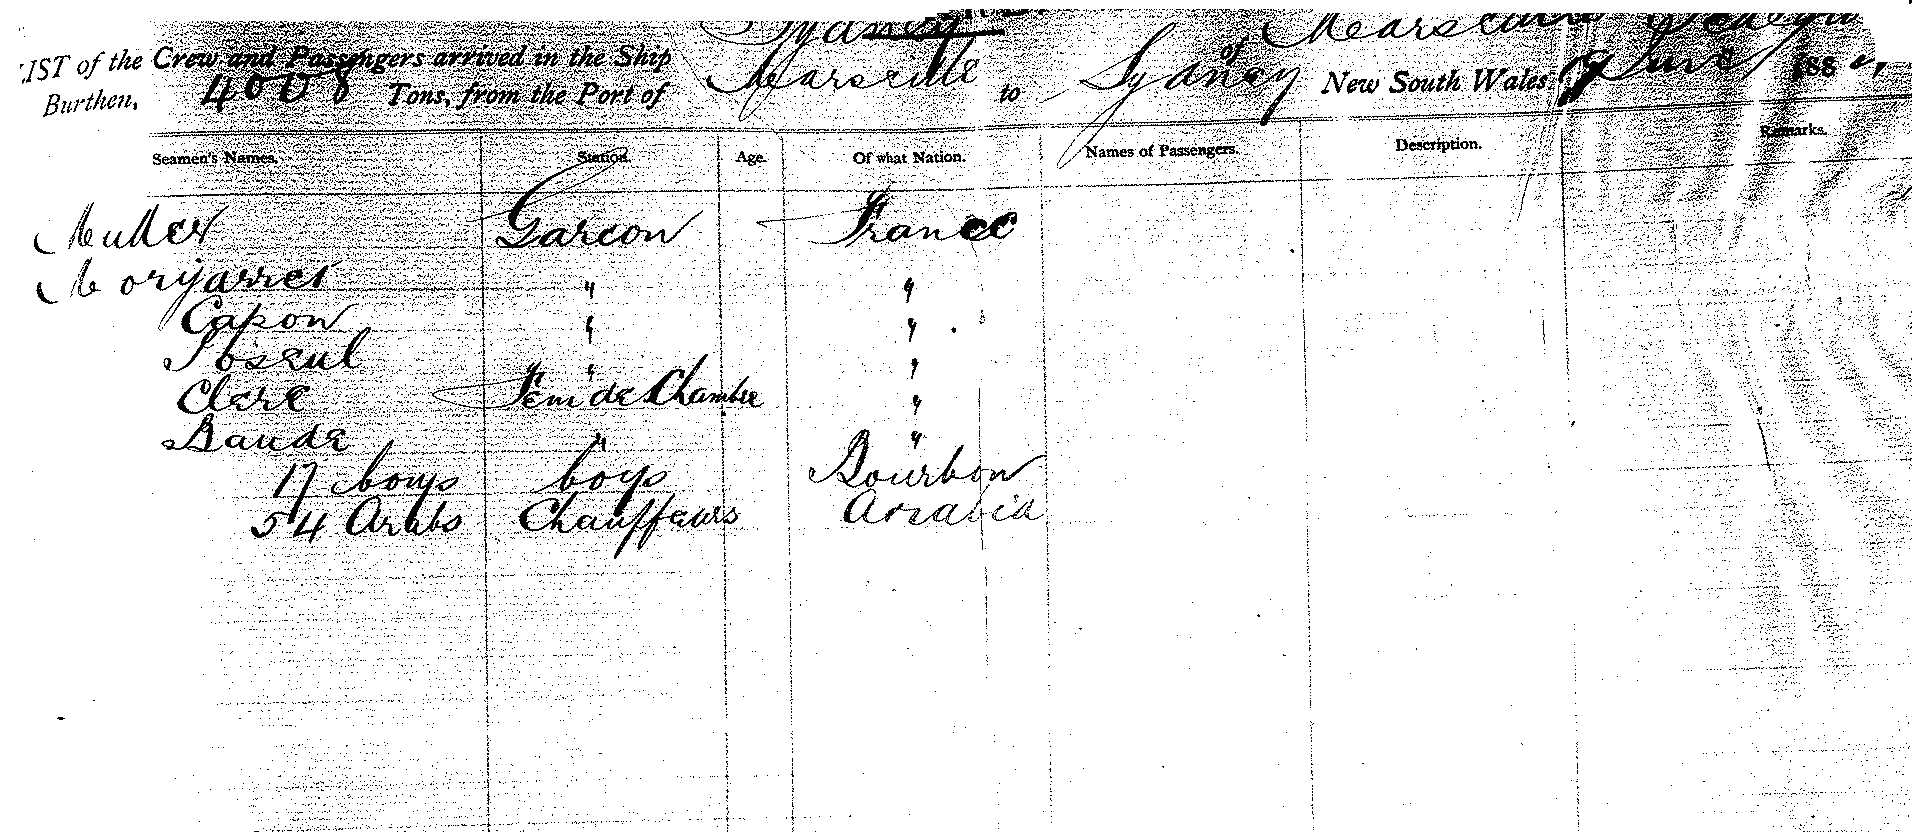 Sydney of Marseille
LIST of the Crew and Passengers arrived in the Ship
Burthen, 4008 Tons, from the Port of Marseille to Sydney New South Wales 9 June 188
Seamen's Names. Station. Age. Of what Nation. Names of Passengers. Description. Remarks.
Muller Garcon France
" "
Capon " "
" "
Clere Fem de Chambre "
Baude " "
17 boys boys Bourbon
54 Arabs Chauffeurs Arabia